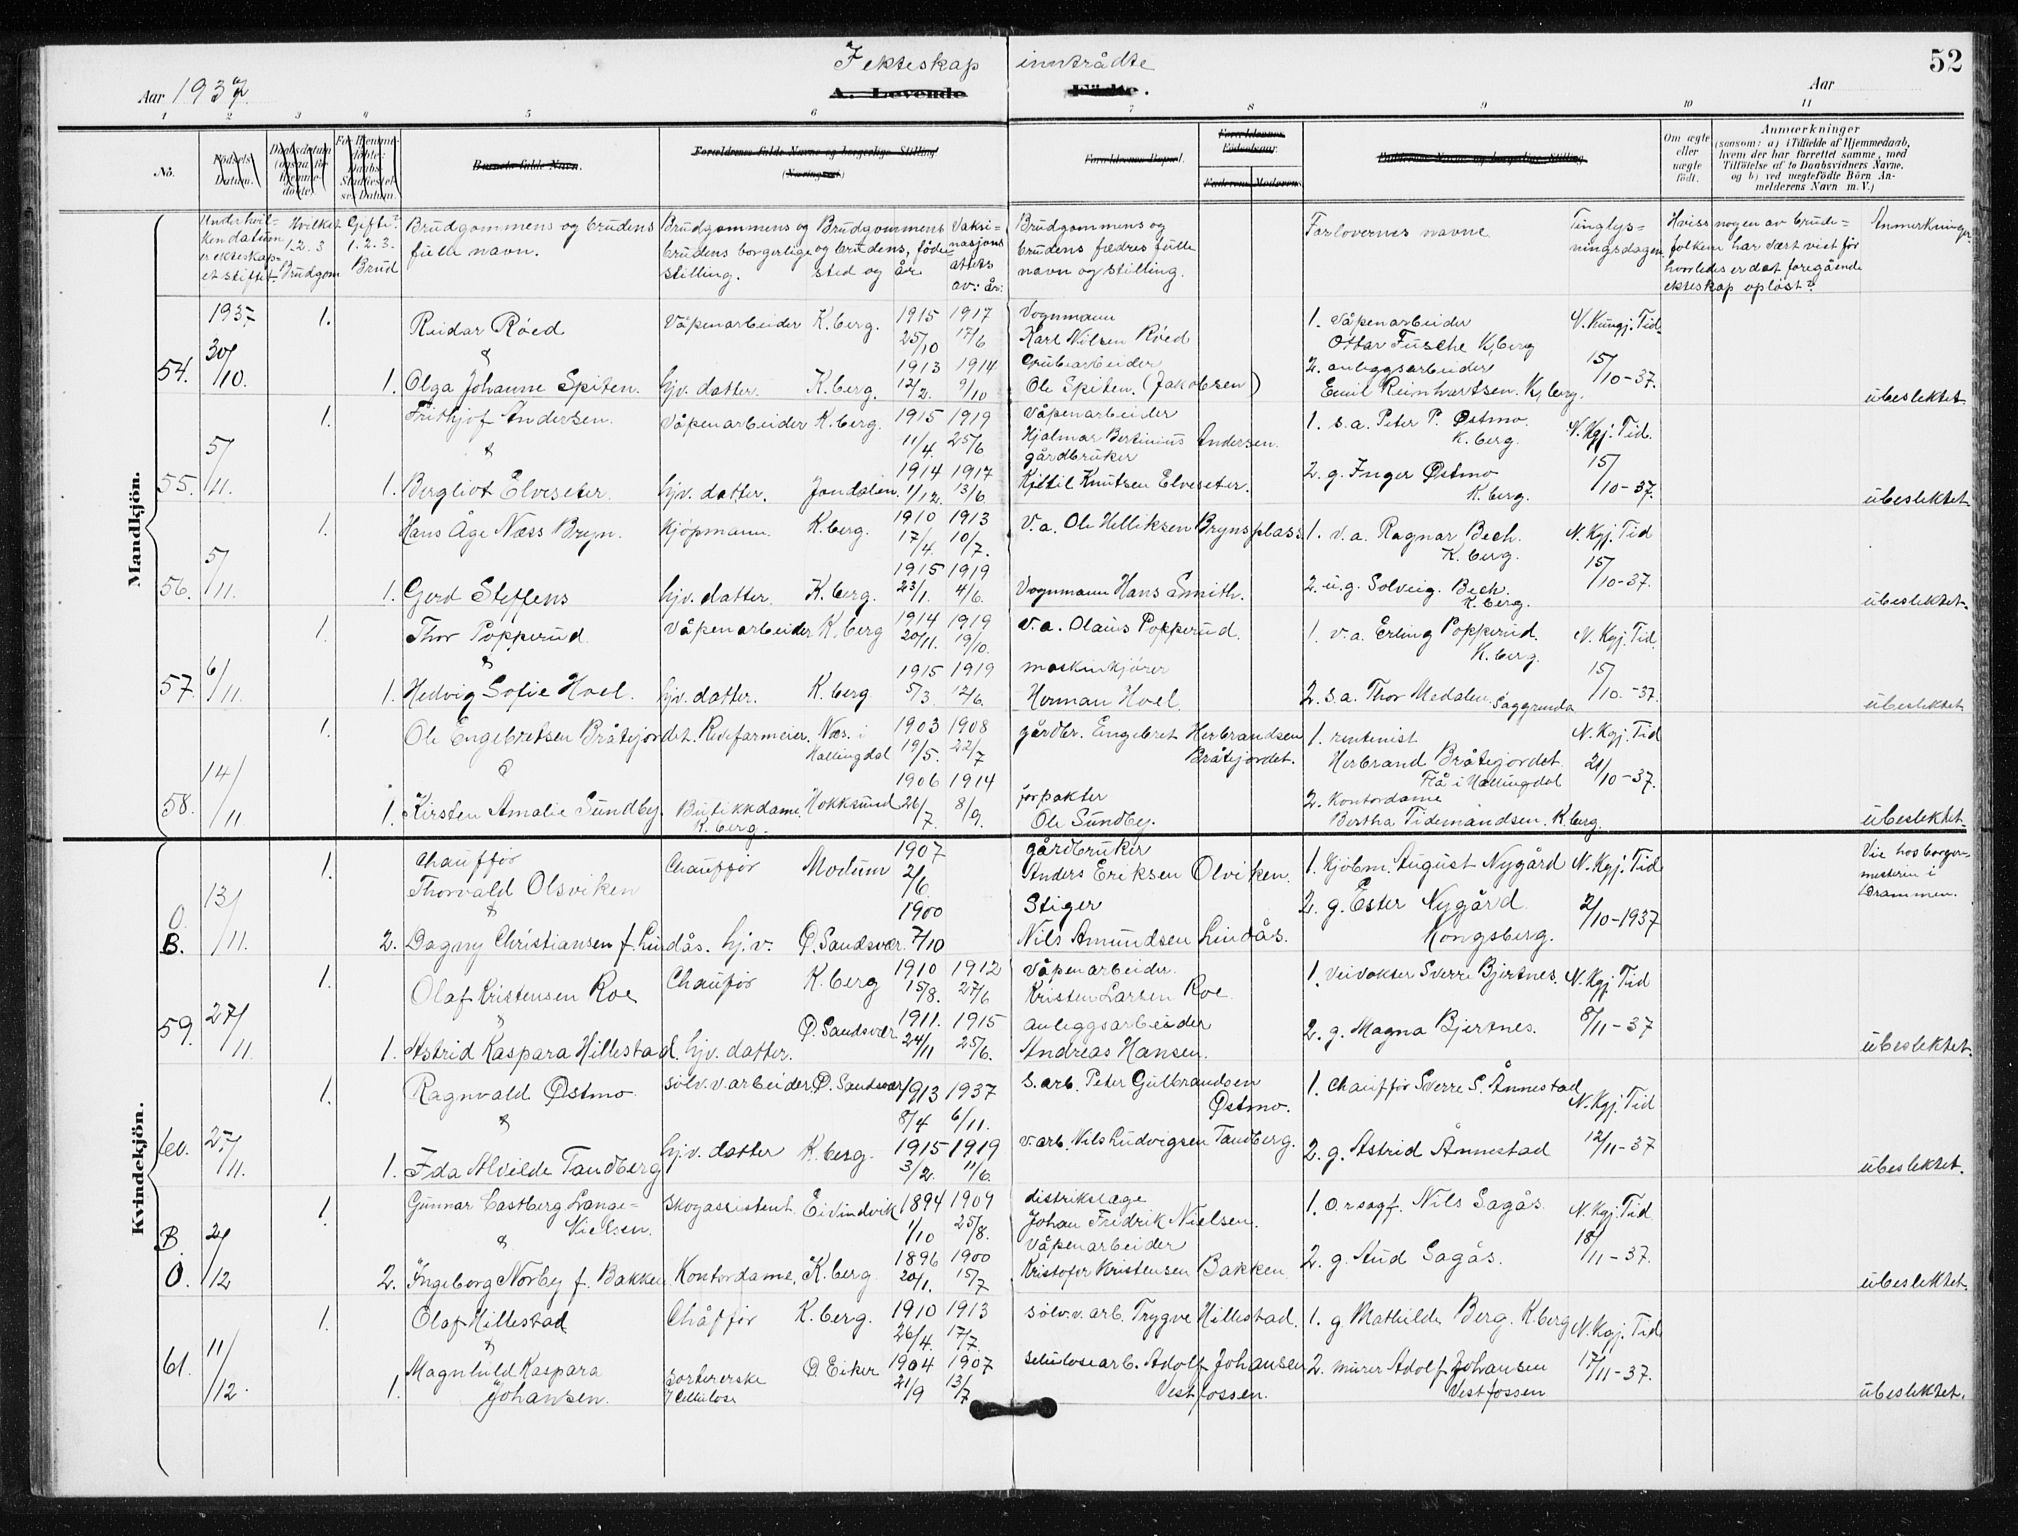 52
I ekteskap inntrådte
Aar 1937. A. Levende Fødte. Aar
1 2 3 4 5 6 7 8 9 10 11
No. Fødsels-Datum. Daabsdatum Barnets fulde Navn. Forældrenes fulde Navne og borgerlige Stilling (Næringsvei) Forældrenes Bopæl. Forældrenes Fødselsaar. Faderens Moderens Faddernes Navne og borgerlige Stilling. Om ægte eller uægte født. Anmærkninger (saasom: a) i Tilfælde af Hjemmedaab, hvem der har forrettet samme, med Tilføielse af to Daabsvidners Navne. og b) ved uægtefødte Börn Anmelderens Navn m. V.)
Under hvilken datum er ekteskapet stiftet. Hvilket 1. 2. 3 Brudgom Gifte? 1. 2. 3. Brud Brudgommens og brudens fulle navn. Brudgommens og brudens borgerlige stilling. Brudgommens og brudens, føde sted og år Vaksinasjons attets av: år: Brudgommens og brudens fædres fulle navn og stilling. Forlovernes navne Tinglysningsdagen Hviss nogen av brudefolken har vært vist før hvorledes er det foregående ekteskap opløst? Anmerkninger
Mandkjön.
54. 1937. 30/10. 1. Reidar Røed Våpenarbeider K.berg. 1915 25/10 1917 17/6 Vognmann Karl Nilsen Røed 1. Våpenarbeider Ottar Fusche K.berg N. Kungj. Tid.
& 1. Olga Johanne Spiten. hjv. datter. K.berg. 1913 12/2. 1914 9/10 Grubearbeider Ole Spiten. (Jakobsen) 2. anleggsarbeider Emil Reinhartsen. K.berg. 15/10-37. ubeslektet.
55. 5/11. 1. Frithjof Andersen. Våpenarbeider K.berg. 1915 11/4. 1919 25/6 Våpenarbeider Hjalmar Bertinius Andersen. 1. s.a. Peter P. Østmo. K.berg. N. Kgj. Tid.
& 1. Bergliot Elveseter. hjv. datter. Jondalen. 1914 1/12. 1917 13/6 gårdbruker Kittil Knutsen Elveseter. 2. g. Inger Østmo K.berg. 15/10-37. ubeslektet
56. 5/11. 1. Hans Åge Næss Bryn. Kjøpmann. K.berg. 1910 17/4. 1913 10/7. V.a. Ole Helliksen Brynsplass. 1. v.a. Ragnar Bech. K.berg. N. Kgj. Tid
1. Gerd Steffens hjv. datter. K.berg. 1915 23/1. 1919 4/6. Vognmann Hans Smith. 2. u.g. Solveig. Bech. K.berg. 15/10-37. ubeslektet.
57. 6/11. 1. Thor Popperud Våpenarbeider K.berg 1914 20/11. 1919 19/10. V.a. Olaus Popperud. 1. v.a. Erling Popperud. K.berg. N. Kgj. Tid.
& 1. Hedvig Sofie Hoel. hjv. datter. K.berg 1915 5/3 1919 12/6. maskinkjører Herman Hoel 2. s.a. Thor Medalen. Saggrenda 15/10.-37. ubeslektet
58. 14/11 1. Ole Engebretsen Bråtejordet. Revefarmeier. Næs. i Hallingdal 1903 19/5. 1908 22/7 gårdbr. Engebret Herbrandsen Bråtejordet. 1. rentenist Herbrand Bråtejordet. Flå i Hallingdal N. Kgj. Tid
& 1. Kirsten Amalie Sundby. Butikkdame. K.berg. Hokksund 1906 26/7. 1914 8/9. forpakter Ole Sundby. 2. Kontordame Bertha Tidemandsen. K.berg. 21/10-37. ubeslektet.
Kvindekjön.
O. B. 13/11. 1. Chauffør Thorvald Olsviken Chauffør Modum 1907 2/6 gårdbruker Anders Eriksen Olviken. 1. Kjøbm. August Nygård N. Kgj. Tid Vie hos borgermesteren i Drammen.
& 2. Dagny Christiansen f. Lindås. hj.v. Ø. Sandsvær. 1900 7/10 Stiger Nils Amundsen Lindås. 2. g. Ester Nygård Kongsberg. 2/10-1937
59. 27/11. 1. Olaf Kristensen Roe Chauffør K.berg 1910 15/8. 1912 27/6 Våpenarbeider. Kristen Larsen Roe. 1. Veivokter Sverre Bjertnes. N. Kgj. Tid
1. Astrid Kaspara Hillestad. hjv. datter. Ø. Sandsvær 1911. 24/11 1915 25/6. anleggsarbeider Andreas Hansen. 2. g. Magna Bjertnes. 8/11-37 ubeslektet.
60. 27/11. 1. Ragnvald Østmo. sølv.v.arbeider Ø. Sandsvær 1913 8/4 1937 6/11. s.arb. Peter Gulbrandsen Østmo. 1. Chauffør Sverre S. Ånnestad N. Kgj. Tid
& 1. Ida Alvilde Tandberg hj.v. datter K.berg. 1915 3/2. 1919 11/6. v.arb. Nils Ludvigsen Tandberg. 2. g. Astrid Ånnestad 12/11-37 ubeslektet.
B. O. 2/12 1. Gunnar Castberg Lange-Nielsen. Skogassistent. Eivindvik 1894 1/10 1909 25/8. distriktslæge Johan Fredrik Nielsen. 1. O.r.sagf. Nils Sagås. N. Kgj. Tid
& 2. Ingeborg Norby f. Bakken. Kontordame. K.berg. 1896 20/1. 1900 15/7 Våpenarbeider Kristofer Kristensen Bakken 2. g. Aud Sagås. 18/11-37. ubeslektet.
61. 11/12. 1. Olaf Hillestad Chåffør K.berg. 1910 26/4. 1913 17/7 sølv.v.arb. Trygve Hillestad. 1. g. Mathilde Berg. K.berg N. Kgj. Tid
& 1. Magnhild Kaspara Johansen. sortererske i Cellulose Ø. Eiker 1904 21/9 1907 13/7 Selulosearb. Adolf Johansen Vestfossen. 2. murer Adolf Johansen Vestfossen 17/11-37. ubeslektet.